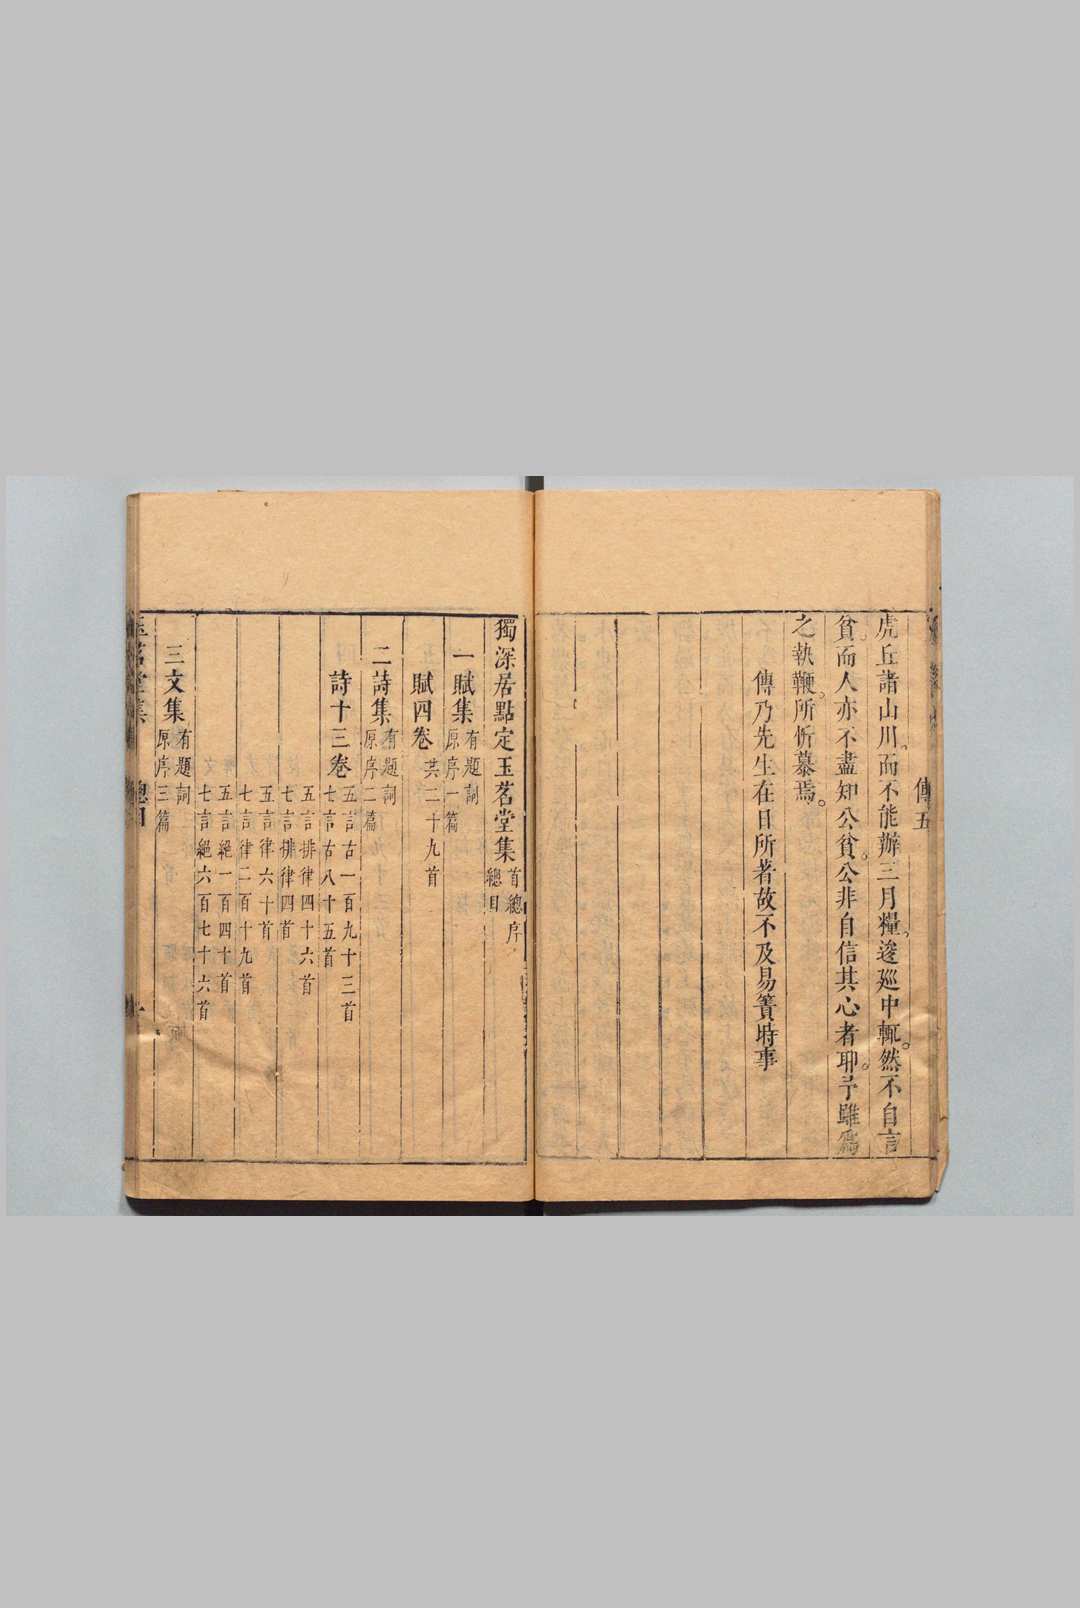 虎丘諸山川。而不能辦三月糧。逡廵中輒。然不自言
貧而人亦不盡知公貧。公非自信其心者耶。予雖爲
之執鞭。所忻慕焉。
傳乃先生在日所著故不及易簀時事
傳五
獨深居點定玉茗堂集
首總序
總目
一賦集
有題詞
原序一篇
賦四卷
共二十九首
二詩集
有題詞
原序二篇
詩十三卷
五言古一百九十三首
七言古八十五首
五言排律四十六首
七言排律四首
五言律六十首
七言律二百十九首
五言絕一百四十首
七言絕六百七十六首
三文集
有題詞
原序三篇
玉茗堂集
總目
一